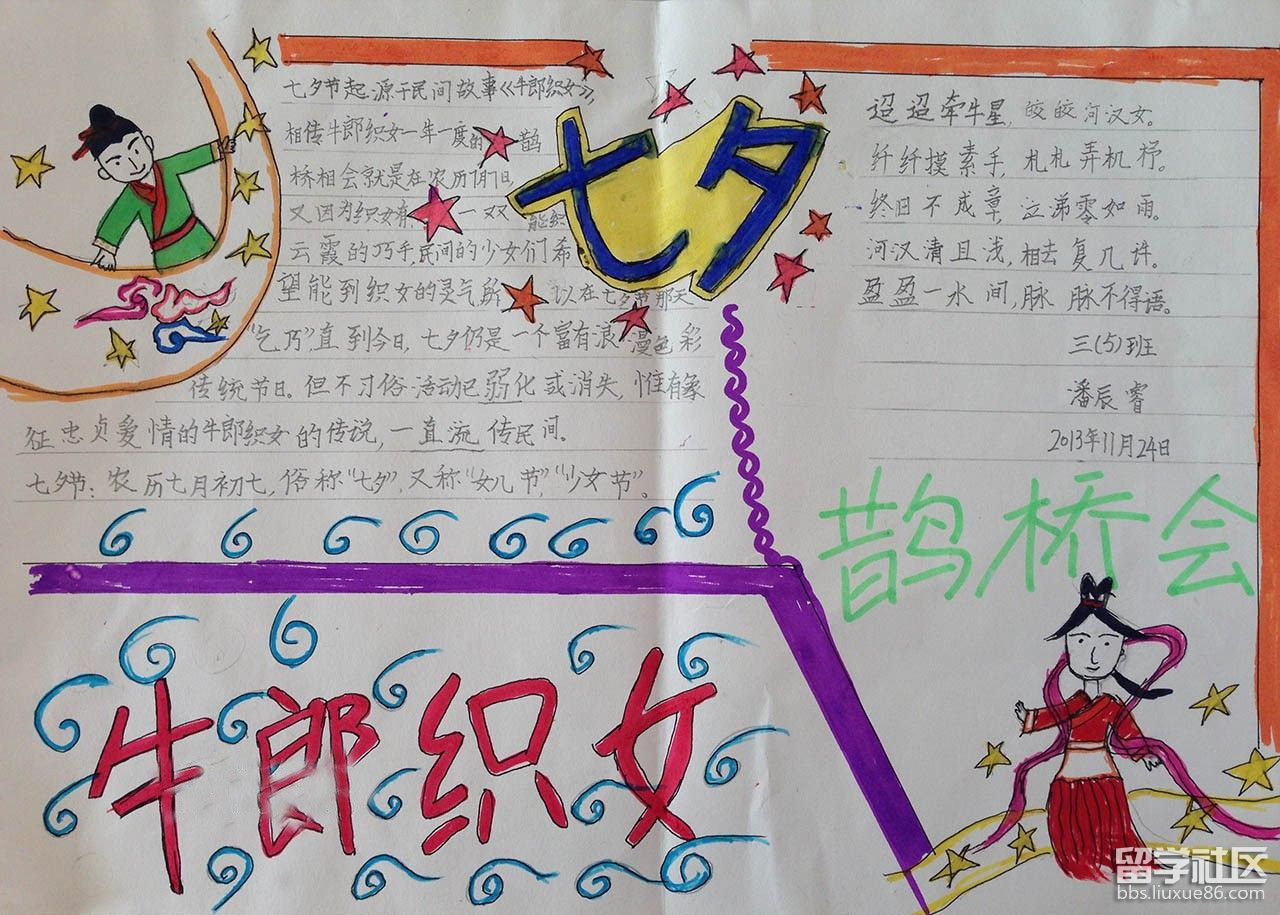 七夕节起源于民间故事《牛郎织女》，
相传牛郎织女一年一度的 鹊
桥相会就是在农历
又因为织女有 一双 能织
云霞的巧手，民间的少女们希
望能到织女的灵气所 以在七夕节那天
“乞巧”，直到今日，七夕仍是一个富有浪漫色彩
传统节日。但不习俗活动已弱化或消失，惟有象
征忠贞爱情的牛郎织女的传说，一直流传民间。
七夕节：农历七月初七，俗称“七夕”，又称“女儿节”，“少女节”。
七夕
迢迢牵牛星，皎皎河汉女。
纤纤摸素手，札札弄机杼。
终日不成章，泣涕零如雨。
河汉清且浅，相去复几许。
盈盈一水间，脉脉不得语。
三(5)班
潘辰睿
2013年11月24日
鹊桥会
牛郎织女
留学社区
bbs.liuxue86.com